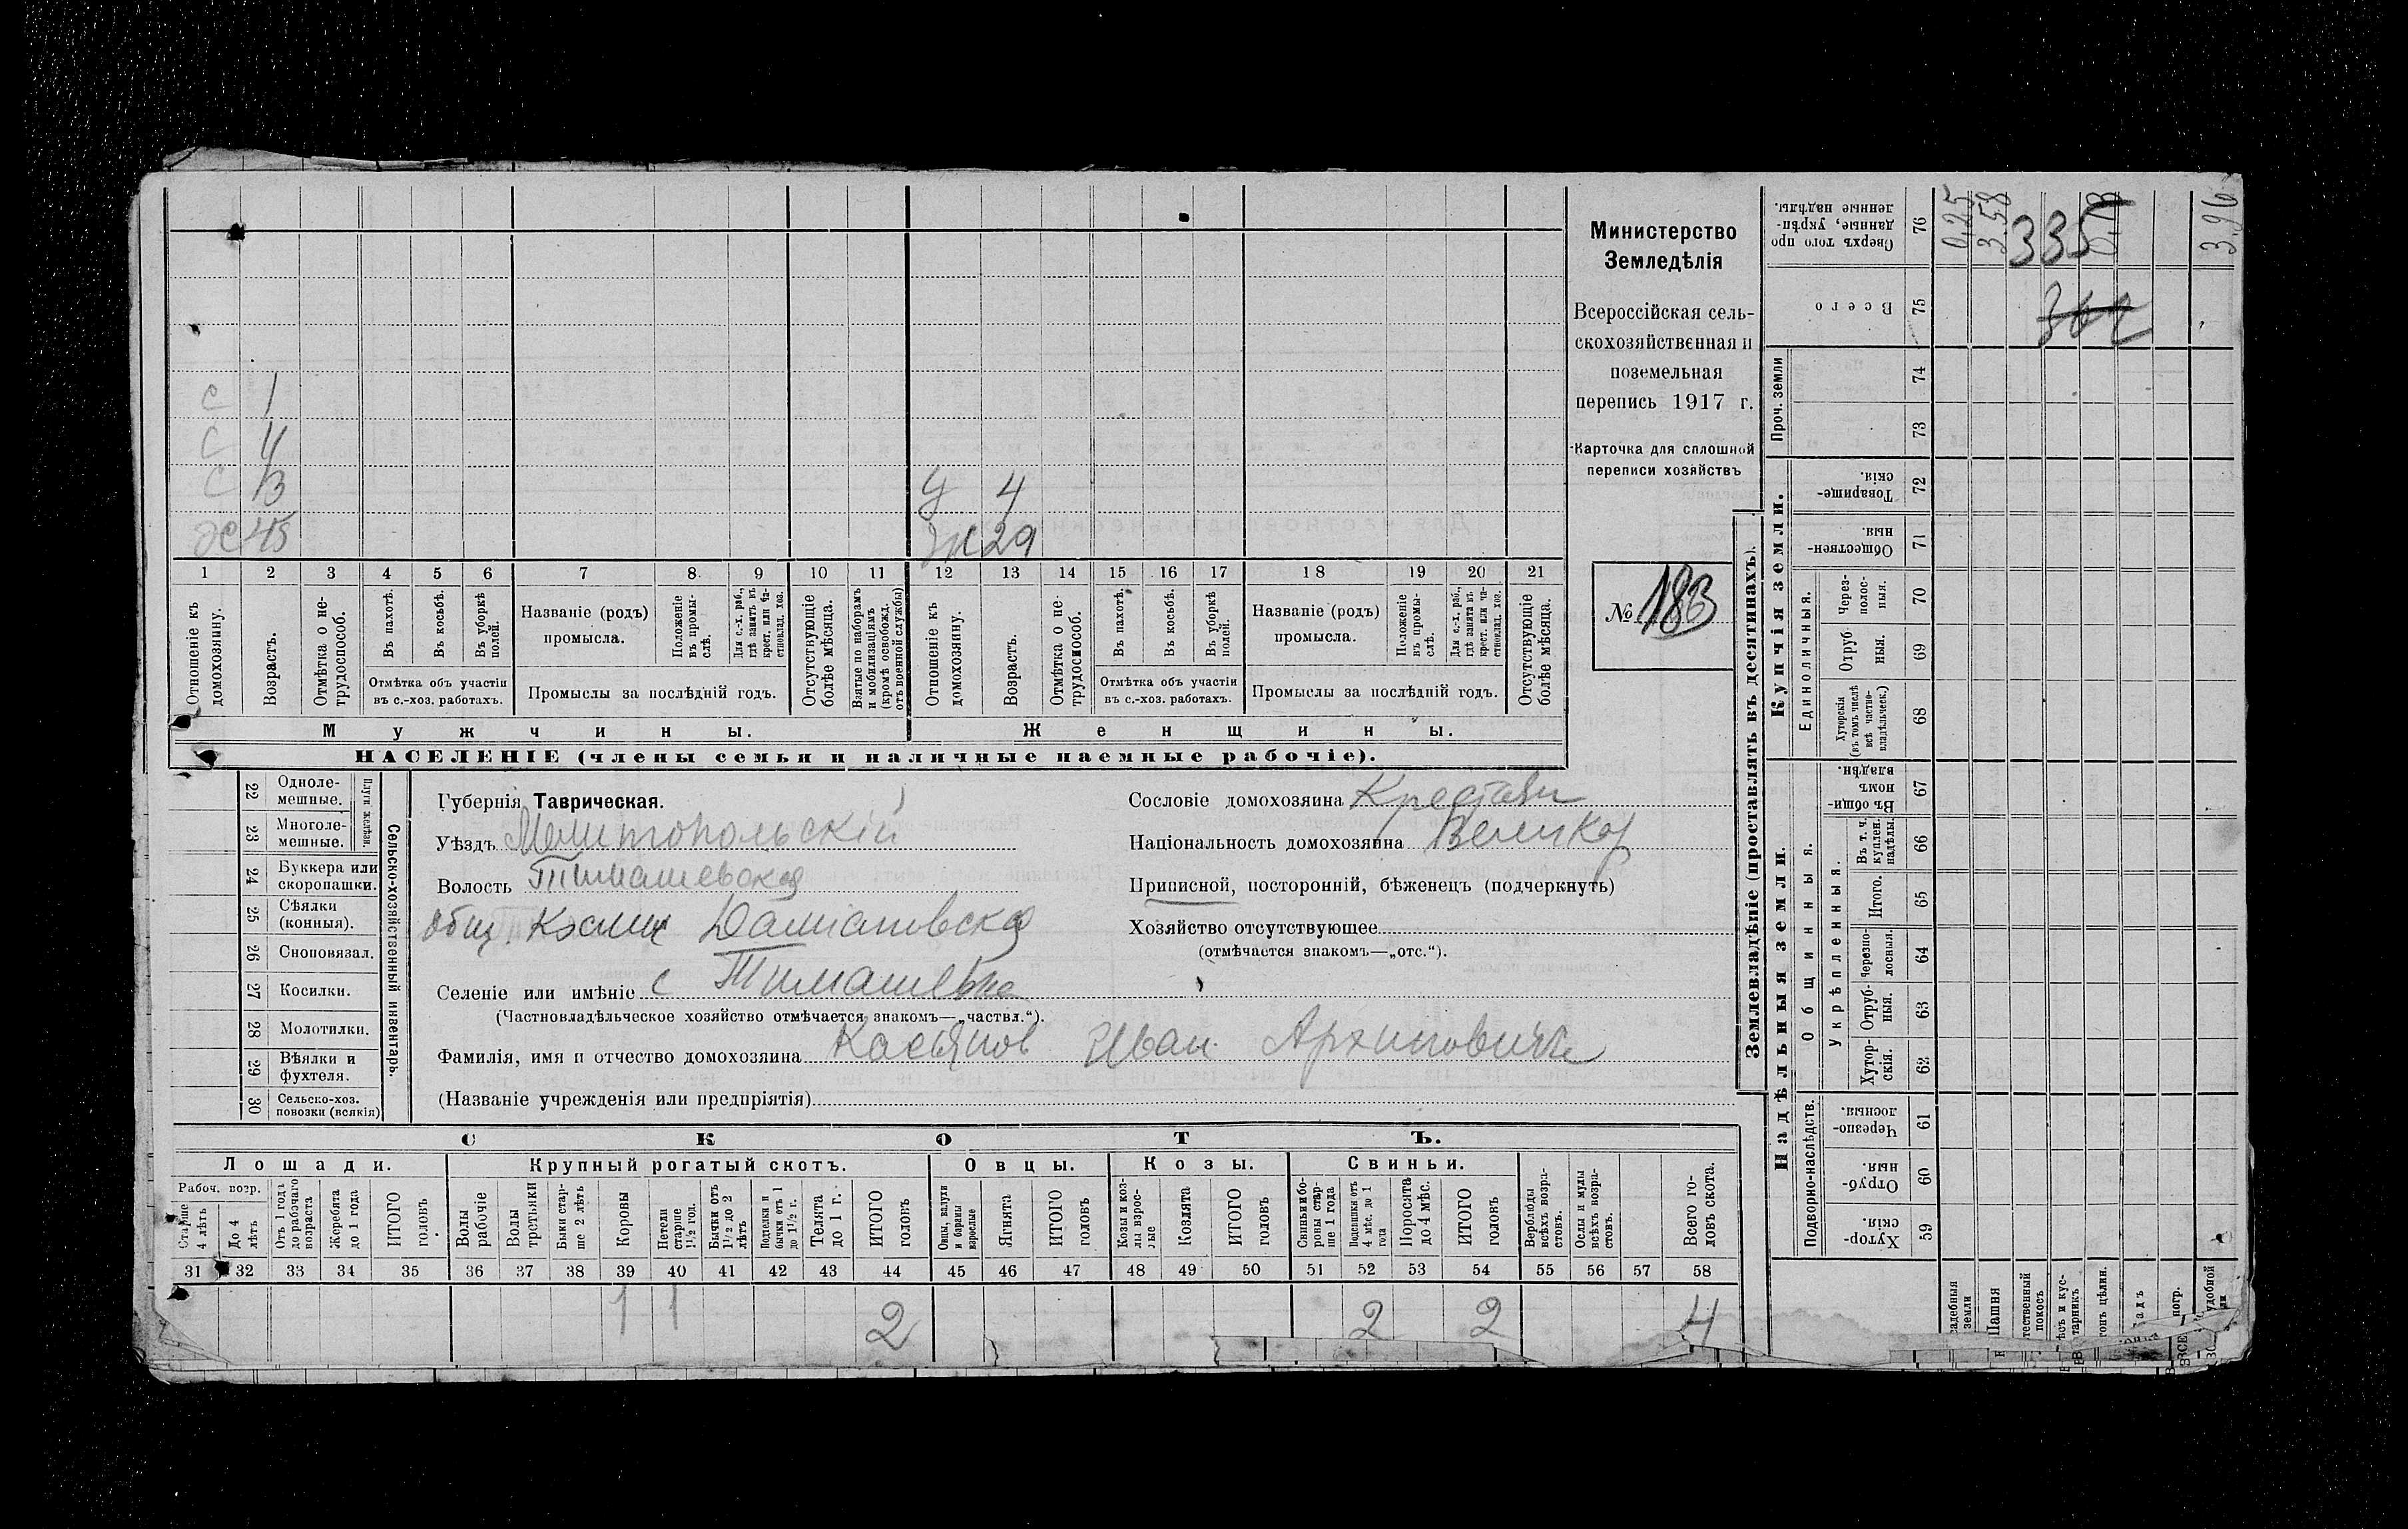 с 1
с 4
с 13
ж 45
У 4
Ж 29
1 2 3 4 5 6 7 8 9 10 11 12 13 14 15 16 17 18 19 20 21
Отношеніе къ домохозяину.
Возрастъ.
Отмѣтка о нетрудоспособ.
Въ пахотѣ.
Въ косьбѣ.
Въ уборкѣ полей.
Отмѣтка объ участіи въ с.-хоз. работахъ.
Названіе (родъ) промысла.
Положеніе въ промыслѣ.
Для с.-х. раб., гдѣ занятъ въ крест. или частновлад. хоз.
Промыслы за послѣдній годъ.
Отсутствующіе болѣе мѣсяца.
Взятые по наборамъ и мобилизаціямъ (кромѣ освобожд. отъ военной службы)
Отношеніе къ домохозяину.
Возрастъ.
Отмѣтка о нетрудоспособ.
Въ пахотѣ.
Въ косьбѣ.
Въ уборкѣ полей.
Отмѣтка объ участіи въ с.-хоз. работахъ.
Названіе (родъ) промысла.
Положеніе въ промыслѣ.
Для с.-х. раб., гдѣ занята въ крест. или частновлад. хоз.
Промыслы за послѣдній годъ.
Отсутствующіе болѣе мѣсяца.
Мужчины. Женщины.
НАСЕЛЕНІЕ (члены семьи и наличные наемные рабочіе).
Министерство
Земледѣлія
Всероссійская сель-
скохозяйственная и
поземельная
перепись 1917 г.
Карточка для сплошной
переписи хозяйствъ
№ 183
22 Одноле-мешные.
23 Многоле-мешные.
Плуги желѣзн.
24 Буккера или скоропашки.
25 Сѣялки (конныя).
26 Сноповязал.
27 Косилки.
28 Молотилки.
29 Вѣялки и фухтеля.
30 Сельско-хоз. повозки (всякія)
Сельско-хозяйственный инвентарь.
Губернія Таврическая.
Уѣздъ Мелитопольскій
Волость Тимашевская
общ.
Селеніе или имѣніе с Тимашевка
(Частновладѣльческое хозяйство отмѣчается знакомъ—„частвл.“).
Фамилія, имя и отчество домохозяина Касьянов Иван Архипович
(Названіе учрежденія или предпріятія)
Сословіе домохозяина Крестьян
Національность домохозяина Великор
Приписной, посторонній, бѣженецъ (подчеркнуть)
Хозяйство отсутствующее
(отмѣчается знакомъ—„отс.“).
СКОТЪ.
Лошади. Крупный рогатый скотъ. Овцы. Козы. Свиньи.
Рабоч. возр.
Старше 4 лѣтъ
До 4 лѣтъ
Отъ 1 года до рабочаго возраста
Жеребята до 1 года
ИТОГО головъ
Волы рабочіе
Волы третьяки
Быки старше 2 лѣтъ
Коровы
Нетели старше 1½ год.
Бычки отъ 1½ до 2 лѣтъ
Подтелки и бычки отъ 1 до 1½ г.
Телята до 1 г.
ИТОГО головъ
Овцы, валухи и бараны взрослые
Ягнята
ИТОГО головъ
Козы и козлы взрослые
Козлята
ИТОГО головъ
Свиньи и бороны старше 1 года
Подсвинки отъ 4 мѣс. до 1 года
Поросята до 4 мѣс.
ИТОГО головъ
Верблюды всѣхъ возрастовъ.
Ослы и мулы всѣхъ возрастовъ.
Всего головъ скота.
31 32 33 34 35 36 37 38 39 40 41 42 43 44 45 46 47 48 49 50 51 52 53 54 55 56 57 58
1 1 2 2 2 4
Землевладѣніе (проставлять въ десятинахъ).
Надѣльныя земли.
Купчія земли.
Проч. земли
Подворно-наслѣдств.
Общинныя.
Укрѣпленныя.
Единоличныя.
Сверхъ того проданные, укрѣпленные надѣлы. 76
Всего 75
74
73
Товарищескія. 72
Общественныя. 71
Черезполосныя. 70
Отрубныя. 69
Хуторскія (въ томъ числѣ всѣ частновладѣльческ.) 68
Въ общинномъ владѣн. 67
Въ т. ч. куплен. надѣлы. 66
Итого. 65
Черезполосныя. 64
Отрубныя. 63
Хуторскія. 62
Черезполосныя. 61
Отрубныя. 60
Хуторскія. 59
0,25
3,58
335
0,13
3,96
Пашня